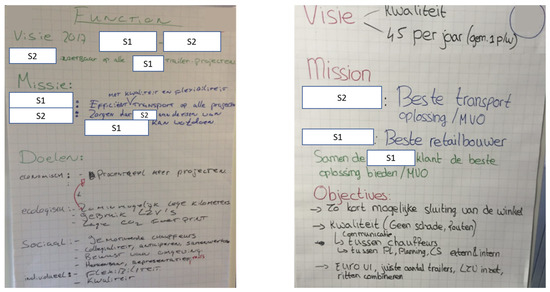 FUNCTION
Visie 2017 S1 - S2
S2 inzetbaar op alle S1 trailer projecten
Missie:
met kwaliteit en flexibiliteit
S1 : Efficiënt transport op alle projecten
S2 : Zorgen dat S2 van
S1 kan worden
Doelen:
economisch: - meer projecten
ecologisch: - Zo min mogelijk lege kilometers
- Gebruik LZV's
- Lage CO2 footprint
Sociaal: - Gemotiveerde chauffeurs
- Collegialiteit, samenwerken
- Bewust van omgeving
- Herkenbaar, representatief
individueel: - Flexibiliteit
- Kwaliteit
Visie
Kwaliteit
45 per jaar (gem. 1 p/w)
Mission
S2 : Beste transport
oplossing / MVO
S1 : Beste retailbouwer
Samen de S1 klant de beste
oplossing bieden / MVO
Objectives:
→ Zo kort mogelijke sluiting van de winkel
→ Kwaliteit (Geen schade, fouten)
Communicatie
↳ tussen chauffeurs
↳ tussen PL, Planning, CS extern & intern
→ Euro VI, juiste aantal trailers, LZV inzet,
ritten combineren